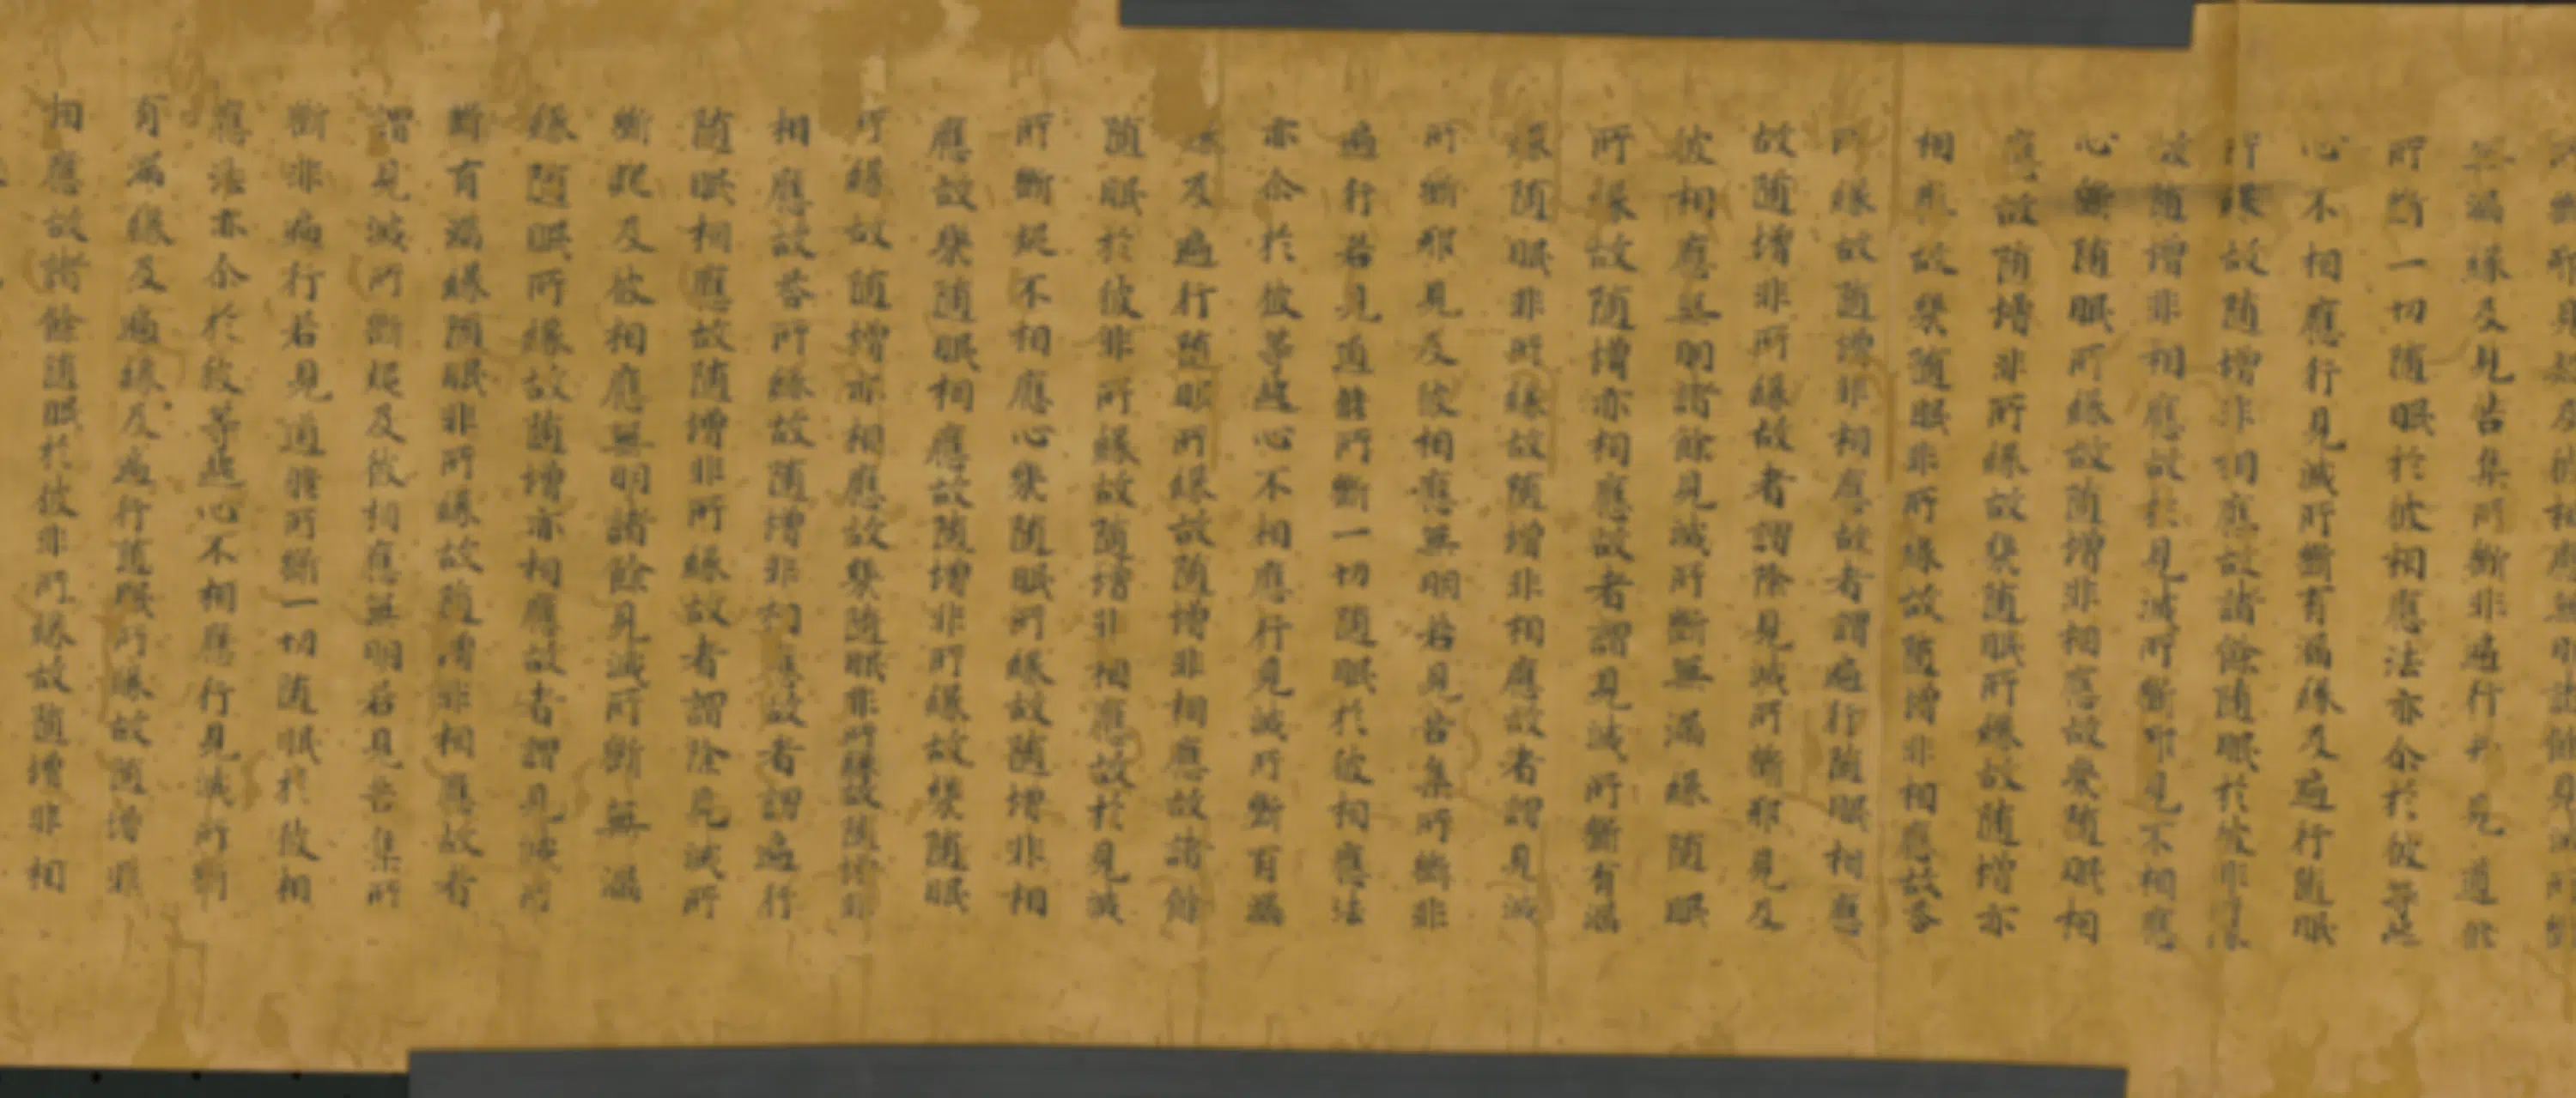 斷邪見及彼相應無明諸餘見滅所斷
無漏緣及見苦集所斷非遍行并見道所
所斷一切隨眠於彼相應法亦尒於彼等起
心不相應行見滅所斷有漏緣及遍行隨眠
所緣故隨增非相應故諸餘隨眠於彼非所緣
故隨增非相應故於見滅所斷邪見不相應
心幾隨眠所緣故隨增非相應故幾隨眠相
應故隨增非所緣故幾隨眠所緣故隨增亦
相應故幾隨眠非所緣故隨增非相應故答
所緣故隨增非相應故者謂遍行隨眠相應
故隨增非所緣故者謂除見滅所斷邪見及
彼相應無明諸餘見滅所斷無漏緣隨眠
所緣故隨增亦相應故者謂見滅所斷有漏
緣隨眠非所緣故隨增非相應故者謂見滅
所斷邪見及彼相應無明若見苦集所斷非
遍行若見道所斷一切隨眠於彼相應法
亦尒於彼等起心不相應行見滅所斷有漏
緣及遍行隨眠所緣故隨增非相應故諸餘
隨眠於彼非所緣故隨增非相應故於見滅
所斷疑不相應心幾隨眠所緣故隨增非相
應故幾隨眠相應故隨增非所緣故幾隨眠
所緣故隨增亦相應故幾隨眠非所緣故隨增非
相應故答所緣故隨增非相應故者謂遍行
隨眠相應故隨增非所緣故者謂除見滅所
斷疑及彼相應無明諸餘見滅所斷無漏
緣隨眠所緣故隨增亦相應故者謂見滅所
斷有漏緣隨眠非所緣故隨增非相應故者
謂見滅所斷疑及彼相應無明若見苦集所
斷非遍行若見道所斷一切隨眠於彼相
應法亦尒於彼等起心不相應行見滅所斷
有漏緣及遍緣及遍行隨眠所緣故隨增非
相應故諸餘隨眠於彼非所緣故隨增非相